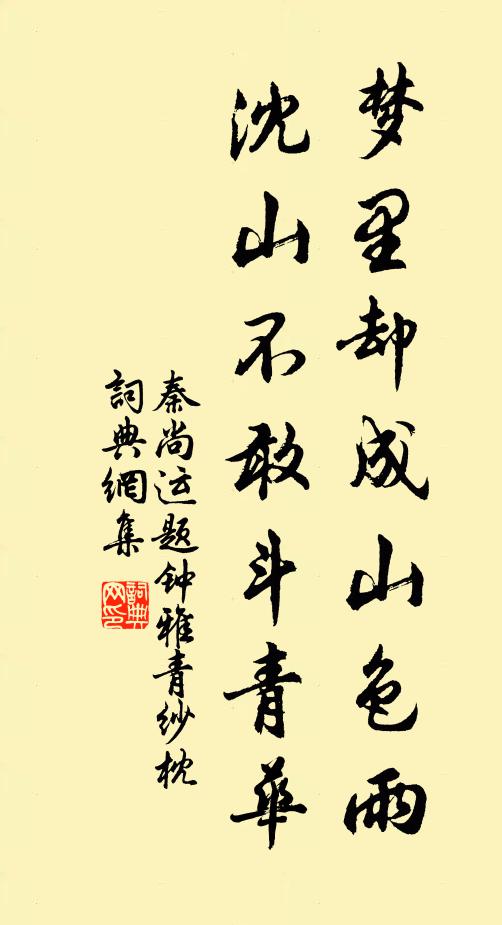 梦里却成山色雨
沈山不敢斗青華
秦尚运题钟雅青纱枕
詞典網集
詞典
网印